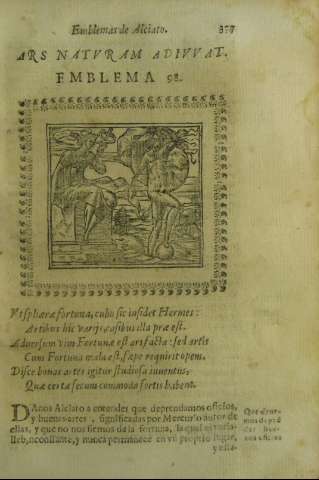 Emblemas de Alciato. 377
ARS NATVRAM ADIVVAT.
EMBLEMA 98.
Vt sphæræ fortuna, cubo sic insidet Hermes:
Artibus hic varijs, casibus illa præ est.
Aduersum vim Fortunæ est ars facta: sed artis
Cum Fortuna mala est, sæpe requirit opem.
Disce bonas artes igitur studiosa iuuentus,
Quæ certæ secum commoda sortis habent.
DAnos Alciato a entender que deprendamos oficios,
y buenas artes, significadas por Mercurio autor de
ellas, y que no nos firmos de la fortuna, la qual es varia
, nconstante, y nunca permanece en vn proprio lugar,
Que
mos